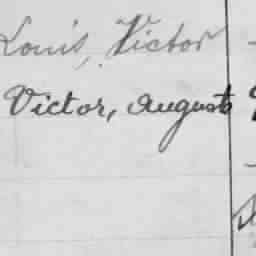 Louis, Victor
Victor, August